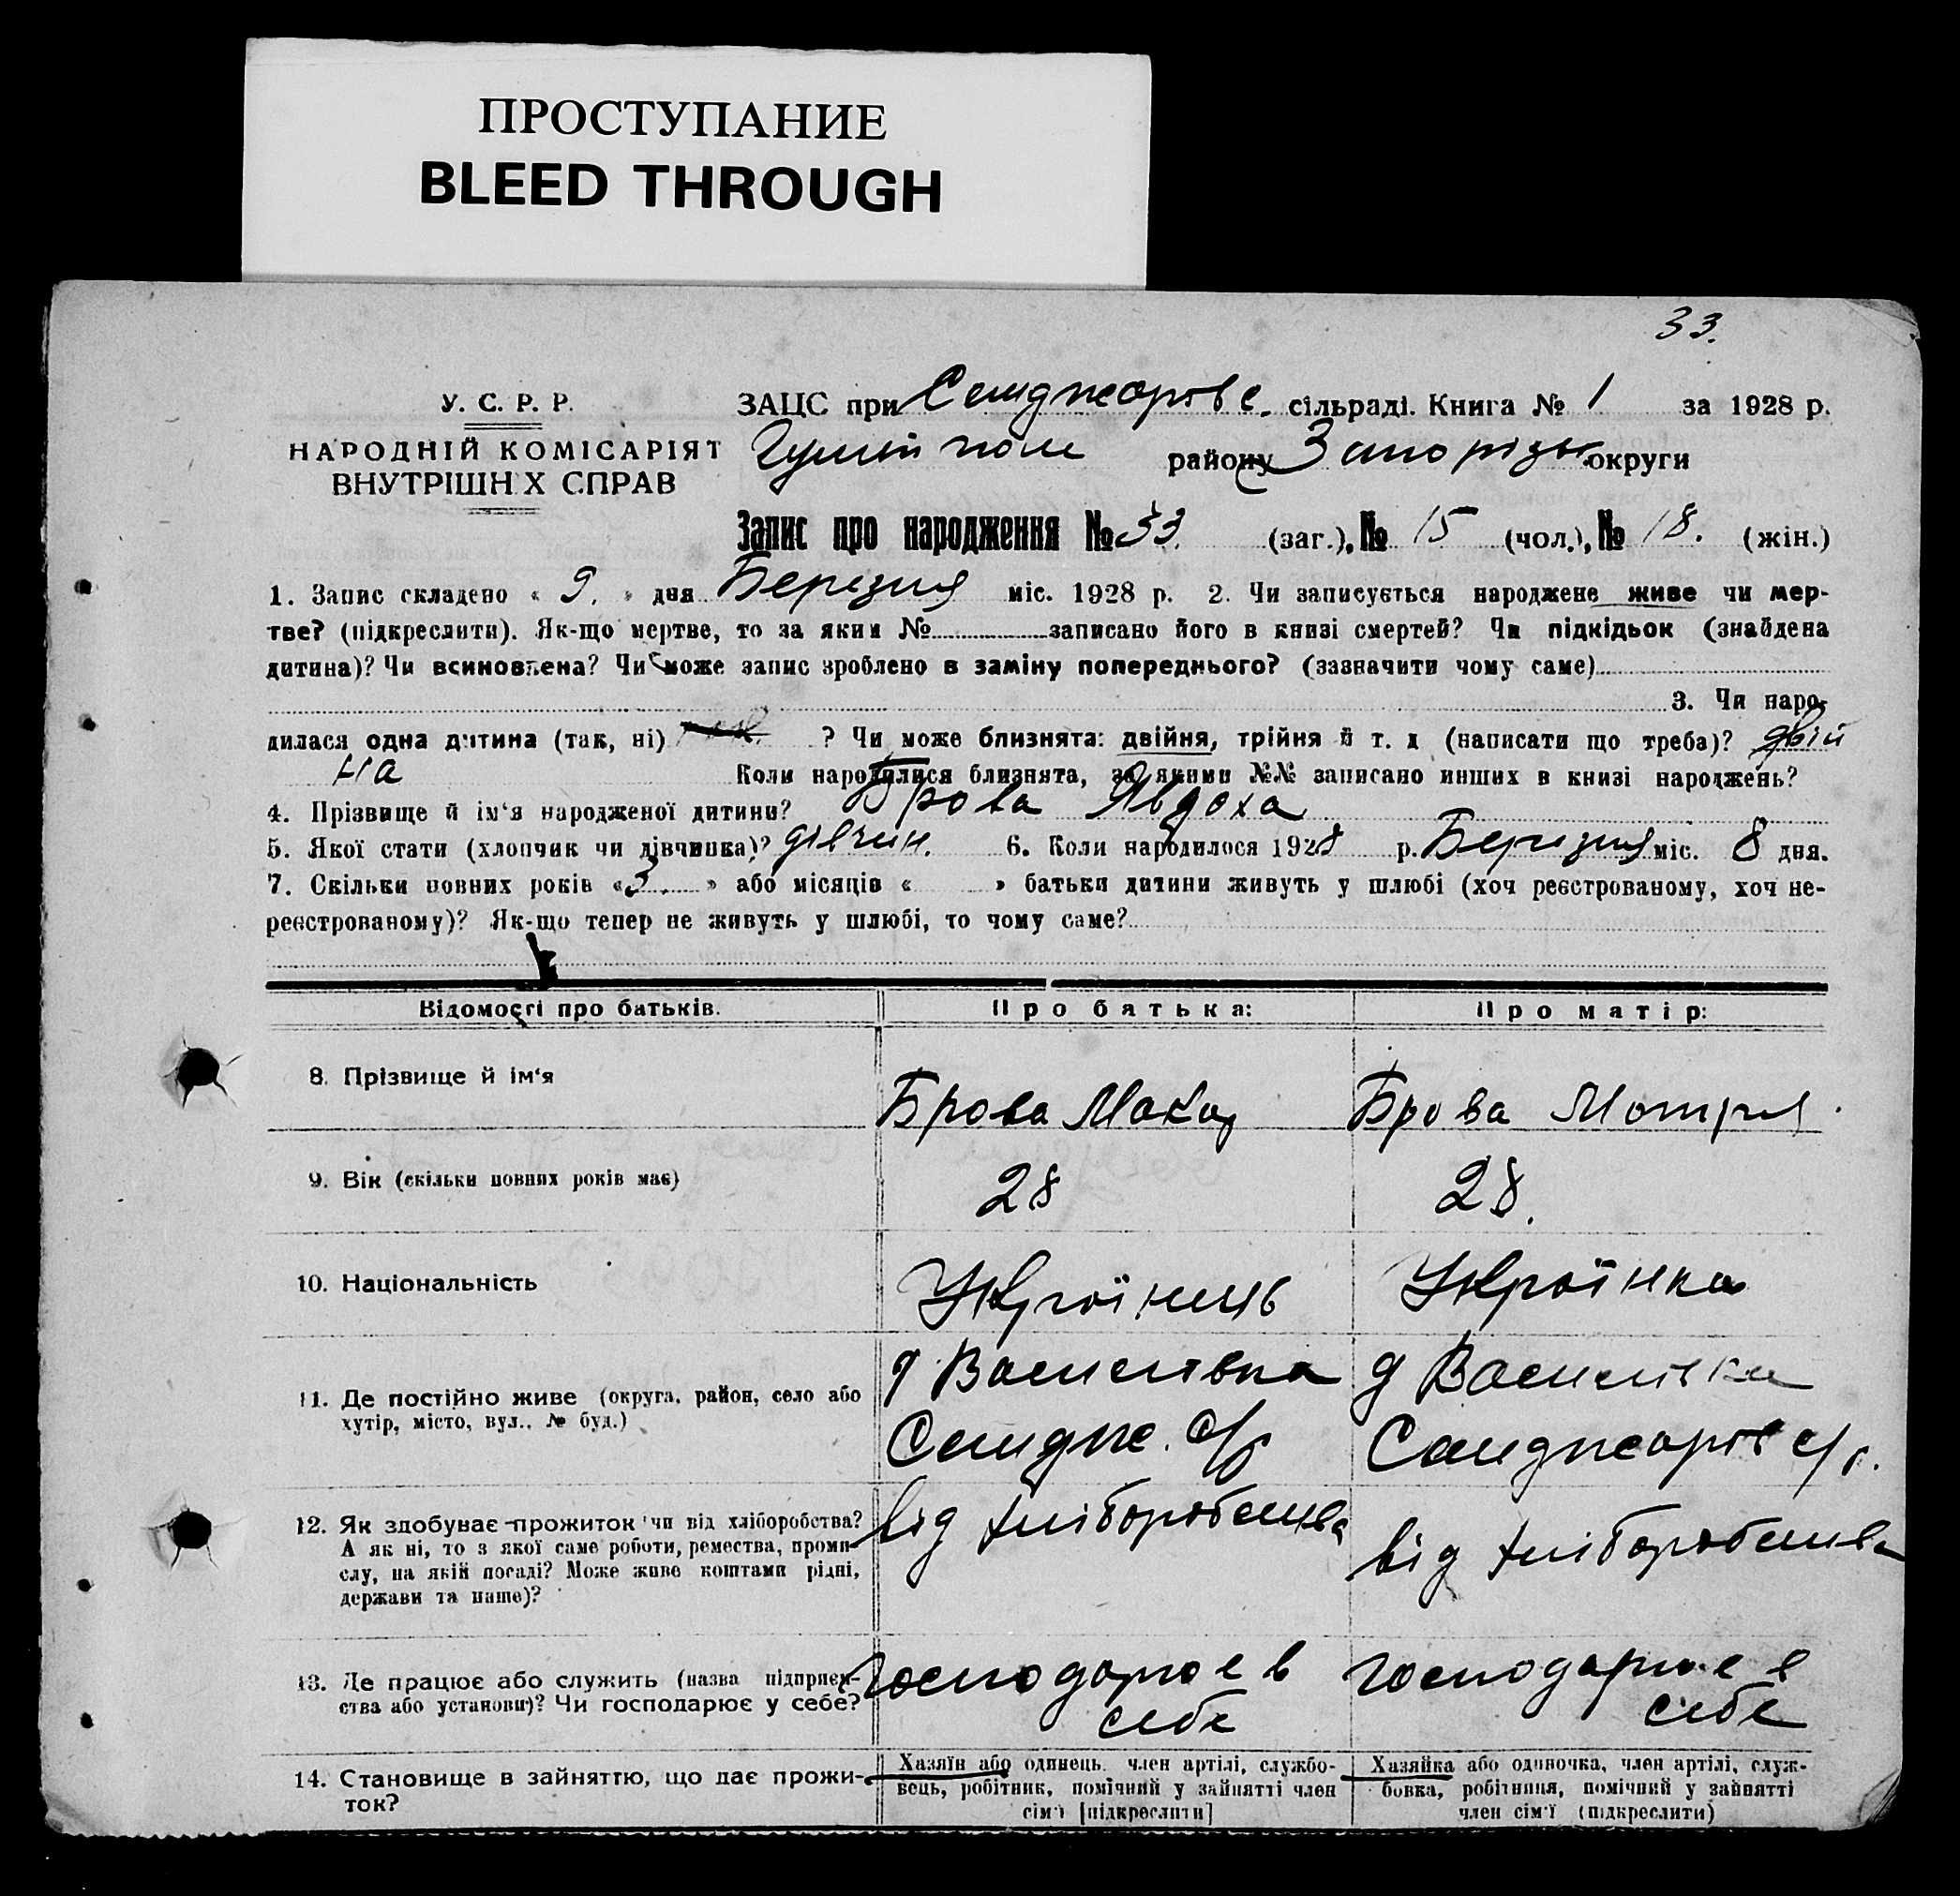 ПРОСТУПАНИЕ
BLEED THROUGH
33.
У. С. Р. Р.
НАРОДНІЙ КОМІСАРІЯТ
ВНУТРІШНІХ СПРАВ
ЗАЦС при Сенджарівс. сільраді. Книга № 1 за 1928 р.
Гуляй поле району Запоріз. округи
Запис про народження № 33. (заг.), № 15 (чол.), № 18. (жін.)
1. Запис складено « 9. » дня Березня міс. 1928 р. 2. Чи записується народжене живе чи мер-
тве? (підкреслити). Як-що мертве, то за яким № записано його в книзі смертей? Чи підкідьок (знайдена
дитина)? Чи всиновлена? Чи може запис зроблено в заміну попереднього? (зазначити чому саме)
3. Чи наро-
дилася одна дитина (так, ні) ? Чи може близнята: двійня, трійня й т. д (написати що треба)? двій
на Коли народилися близнята, за якими №№ записано инших в книзі народжень?
4. Прізвище й ім‘я народженої дитини? Брова Явдоха
5. Якої стати (хлопчик чи дівчинка)? дівчин. 6. Коли народилося 1928 р. Березня міс. 8 дня.
7. Скільки повних років « 3. » або місяців « » батьки дитини живуть у шлюбі (хоч реєстрованому, хоч не-
реєстрованому)? Як-що тепер не живуть у шлюбі, то чому саме?
Відомості про батьків. Про батька: Про матір:
8. Прізвище й ім‘я Брова Макар Брова Мотря
9. Вік (скільки повних років має) 28 28.
10. Національність Українець Українка
11. Де постійно живе (округа, район, село або
хутір, місто, вул., № буд.)
д Василівка
Сендж. с/р
д Василівка
Санджарів с/р.
12. Як здобуває прожиток чи від хліборобства?
А як ні, то з якої саме роботи, ремества, проми-
слу, на якій посаді? Може живе коштами рідні,
держави та инше)?
від хліборобства
від хліборобства
13. Де працює або служить (назва підприєм-
ства або установи)? Чи господарює у себе?
господарює в
себе
господарює в
себе
14. Становище в зайняттю, що дає прожи-
ток?
Хазяїн або одинець, член артілі, службо-
вець, робітник, помічний у зайнятті член
сім‘ї [підкреслити]
Хазяйка або одиночка, член артілі, служ-
бовка, робітниця, помічний у зайнятті
член сім‘ї (підкреслити)